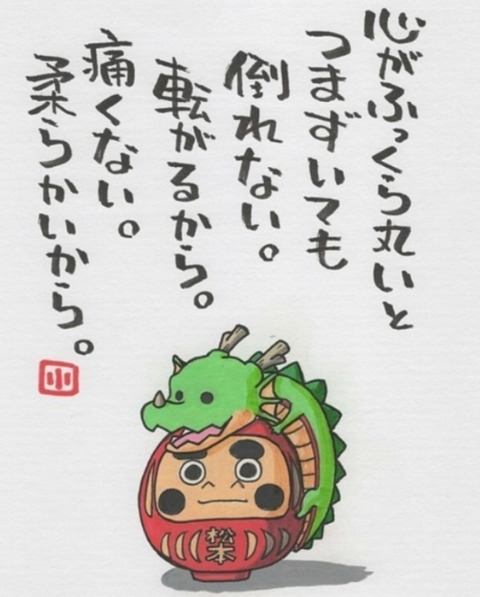 心がふっくら丸いと
つまずいても
倒れない。
転がるから。
痛くない。
柔らかいから。
小
松本